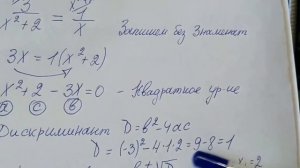 3/(x²+2) = 1/x
Запишем без знаменат
3x = 1(x²+2)
x²+2-3x=0 - Квадратное ур-ие
a c b
Дискриминант D=b²-4ac
D=(-3)²-4·1·2=9-8=1